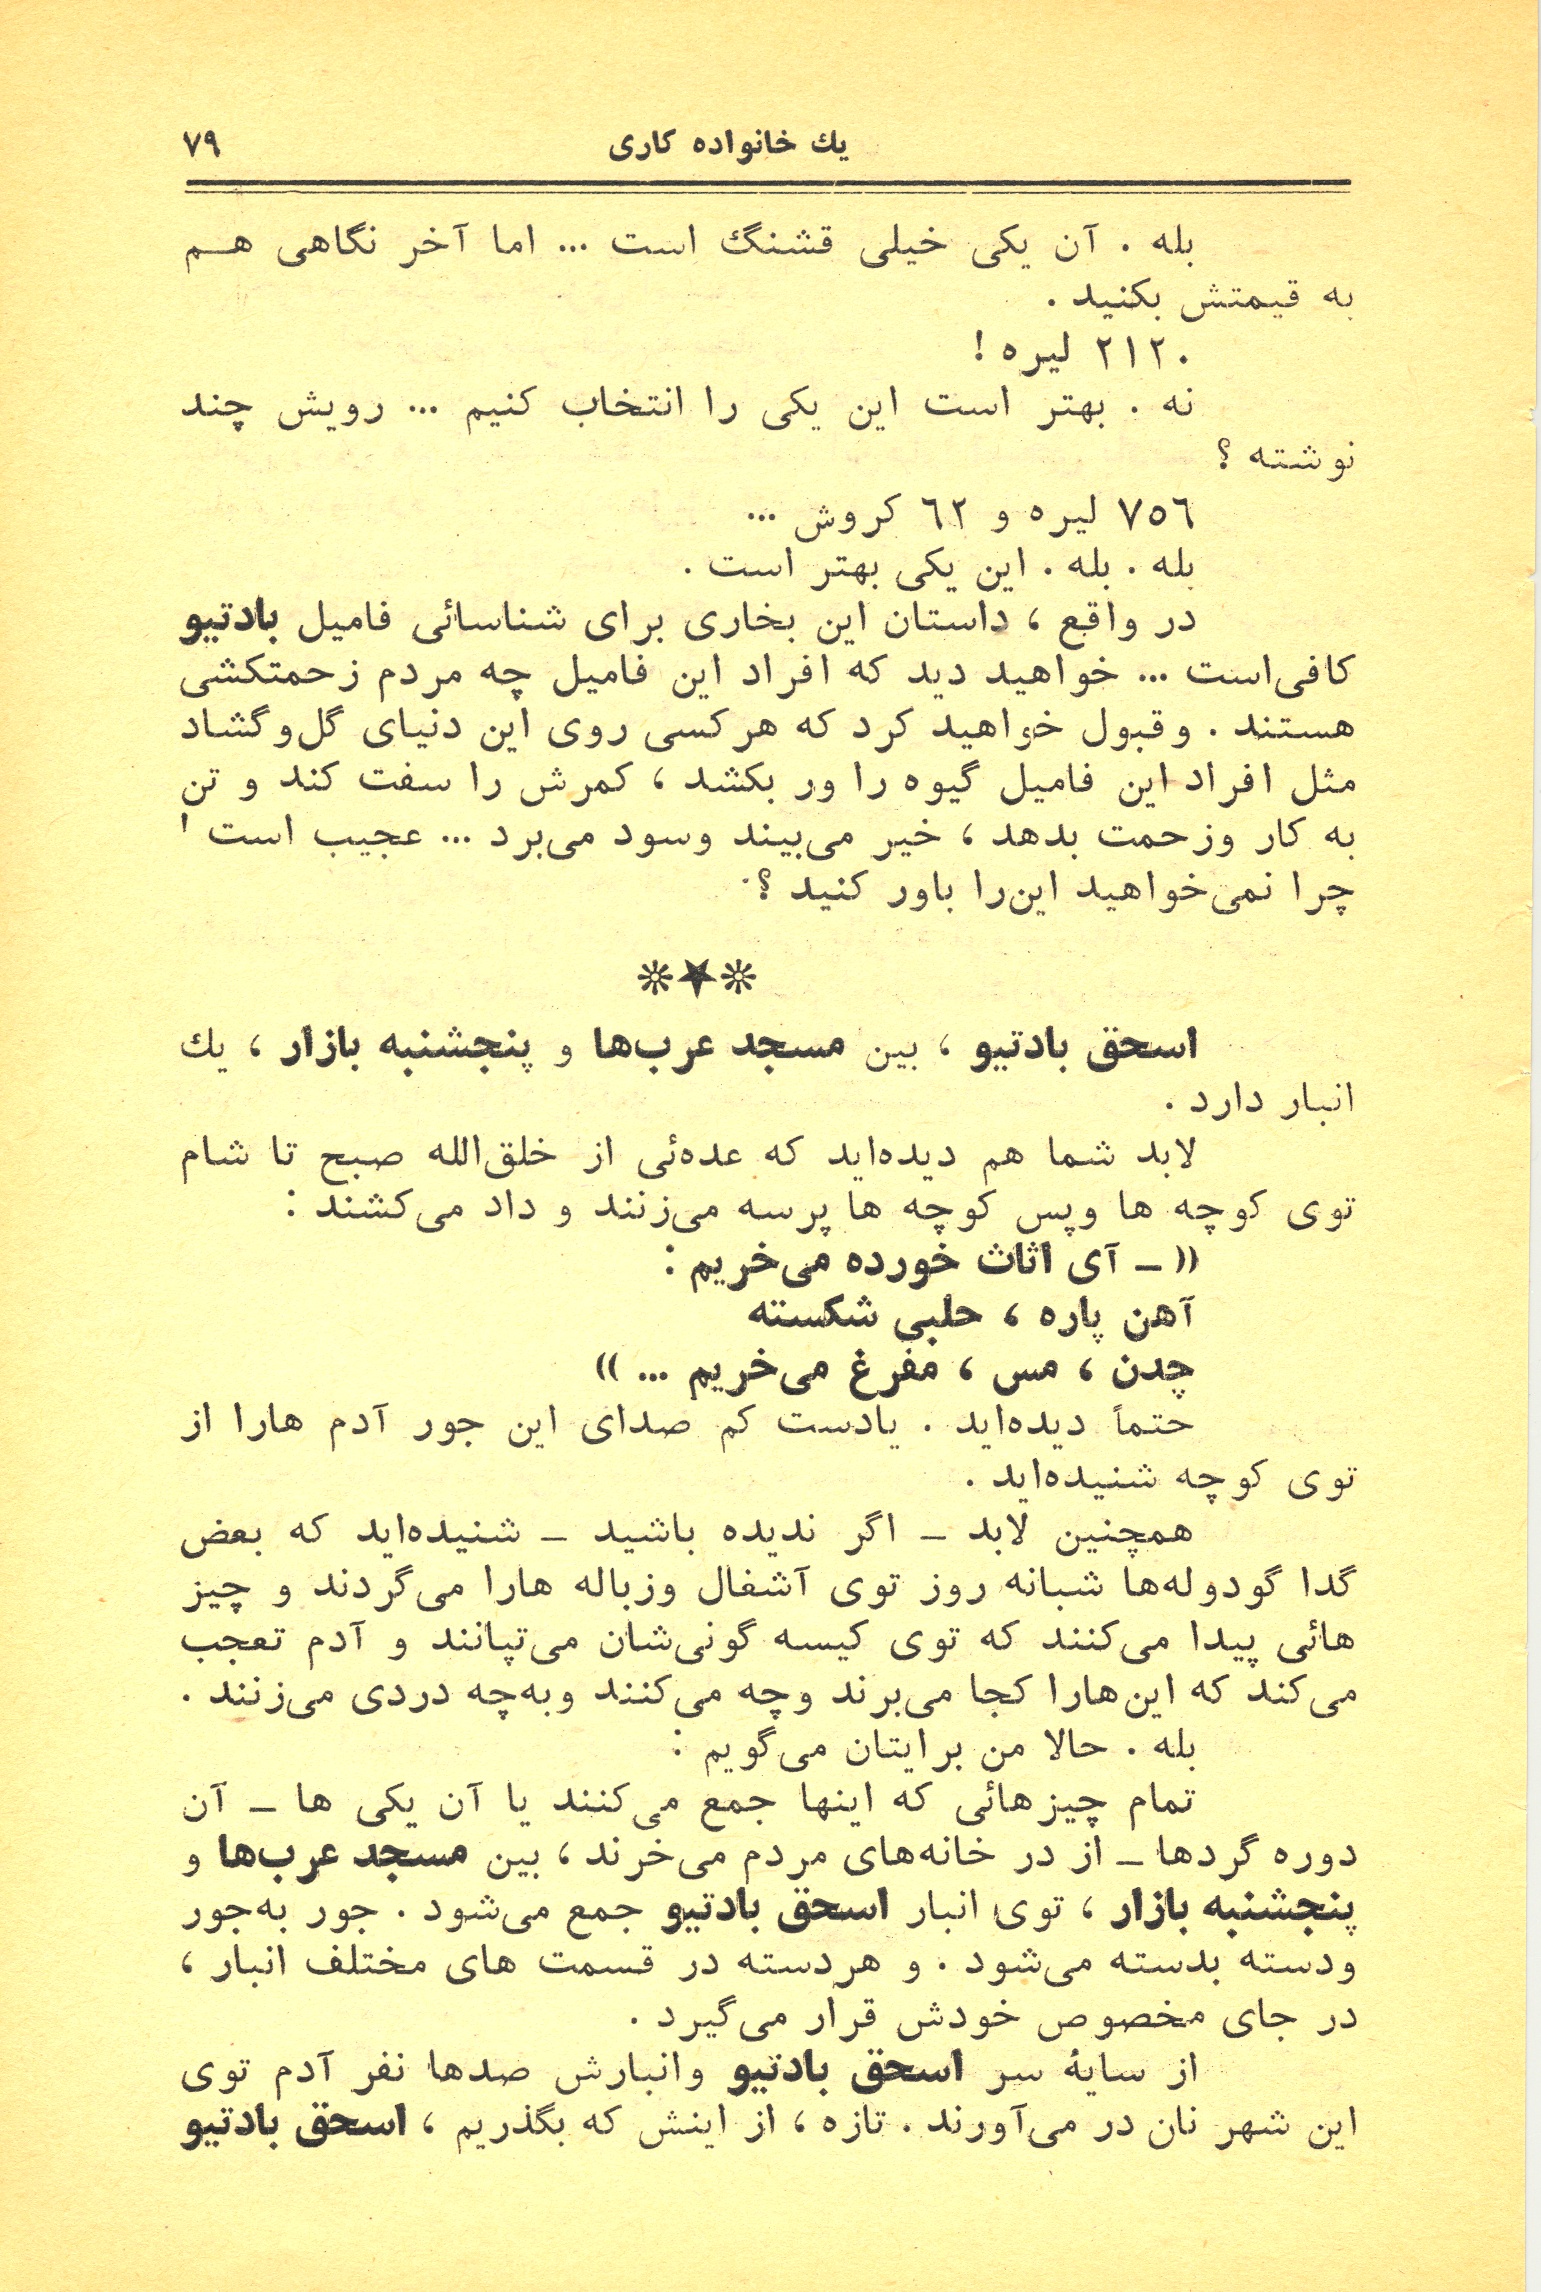 یك خانواده کاری ۷۹
بله . آن یکی خیلی قشنگ است ... اما آخر نگاهی هــم
به قیمتش بکنید .
۲۱۲۰ لیره !
نه . بهتر است این یکی را انتخاب کنیم ... رویش چند
نوشته ؟
۷٥٦ لیره و ٦٢ کروش ...
بله . بله . این یکی بهتر است .
در واقع ، داستان این بخاری برای شناسائی فامیل بادتیو
کافی‌است ... خواهید دید که افراد این فامیل چه مردم زحمتکشی
هستند . وقبول خواهید کرد که هرکسی روی این دنیای گل‌وگشاد
مثل افراد این فامیل گیوه را ور بکشد ، کمرش را سفت کند و تن
به کار وزحمت بدهد ، خیر می‌بیند وسود می‌برد ... عجیب است !
چرا نمی‌خواهید این‌را باور کنید ؟
❊★❊
اسحق بادتیو ، بین مسجد عرب‌ها و پنجشنبه بازار ، یك
انبار دارد .
لابد شما هم دیده‌اید که عده‌ئی از خلق‌الله صبح تا شام
توی کوچه ها وپس کوچه ها پرسه می‌زنند و داد می‌کشند :
(( ـ آی اثاث خورده می‌خریم :
آهن پاره ، حلبی شکسته
چدن ، مس ، مفرغ می‌خریم ... ))
حتماً دیده‌اید . یادست کم صدای این جور آدم هارا از
توی کوچه شنیده‌اید .
همچنین لابد ـ اگر ندیده باشید ـ شنیده‌اید که بعض
گدا گودوله‌ها شبانه روز توی آشغال وزباله هارا می‌گردند و چیز
هائی پیدا می‌کنند که توی کیسه گونی‌شان می‌تپانند و آدم تعجب
می‌کند که این‌هارا کجا می‌برند وچه می‌کنند وبه‌چه دردی می‌زنند .
بله . حالا من برایتان می‌گویم :
تمام چیزهائی که اینها جمع می‌کنند یا آن یکی ها ـ آن
دوره گردها ـ از در خانه‌های مردم می‌خرند ، بین مسجد عرب‌ها و
پنجشنبه بازار ، توی انبار اسحق بادتیو جمع می‌شود . جور به‌جور
ودسته بدسته می‌شود . و هردسته در قسمت های مختلف انبار ،
در جای مخصوص خودش قرار می‌گیرد .
از سایهٔ سر اسحق بادتیو وانبارش صدها نفر آدم توی
این شهر نان در می‌آورند . تازه ، از اینش که بگذریم ، اسحق بادتیو